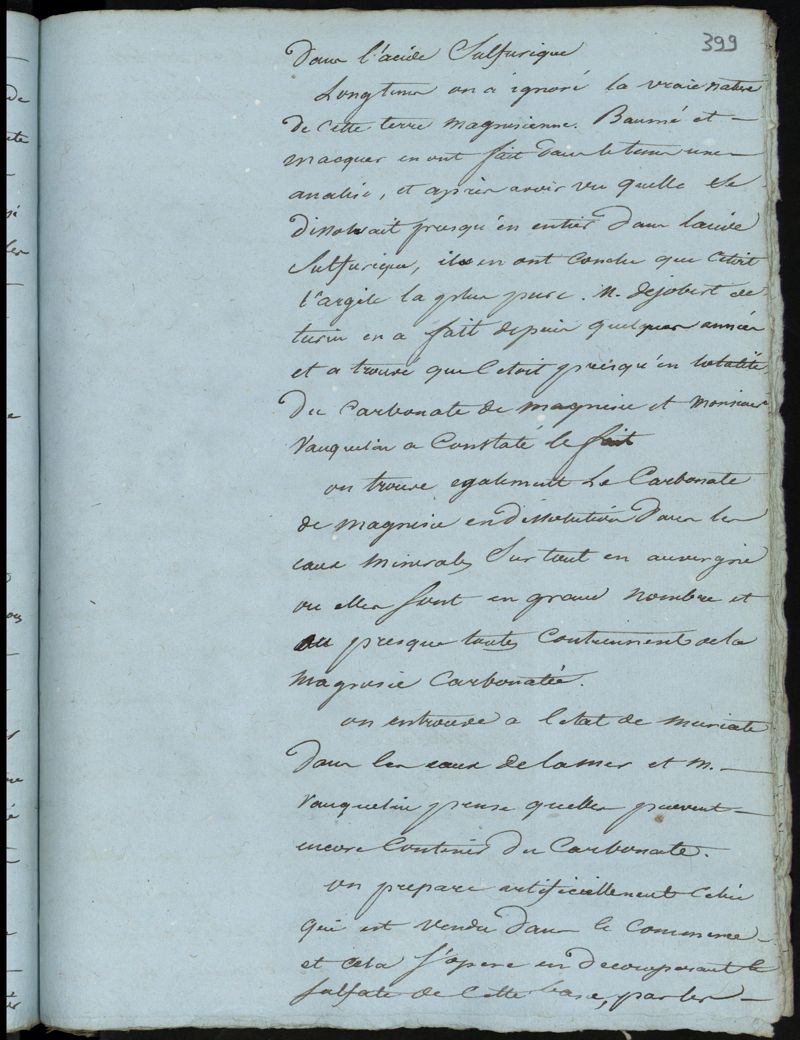 399
Dans l'acide Sulfurique
Longtems on a ignoré la vraie nature
de cette terre magnesienne. Baumé et
macquer en ont fait dans le tems une
analise, et après avoir vu quelle se
dissolvait presqu'en entier dans lacide
Sulfurique, ils en ont conclu que c'etoit
l'argile la plus pure. M. dejobert de
turin en a fait depuis quelques années
et a trouvé que c etoit presqu'en totalité
du Carbonate de magnesie et Monsieur
Vauquelin a Constaté le fait
on trouve egalement le Carbonate
de magnesie en dissolution dans les
eaux minerales Sur tout en auvergne
ou elles sont en grand nombre et
ou presque toutes Contiennent de la
Magnesie Carbonatée.
on en trouve a l'etat de muriate
dans les eaux de la mer et M.
Vauquelin pense quelles peuvent
encore Contenir du Carbonate.
on prepare artificiellement celui
qui est vendu dans le Commerce
et cela s'opere en decomposant le
sulfate de cette base, par les